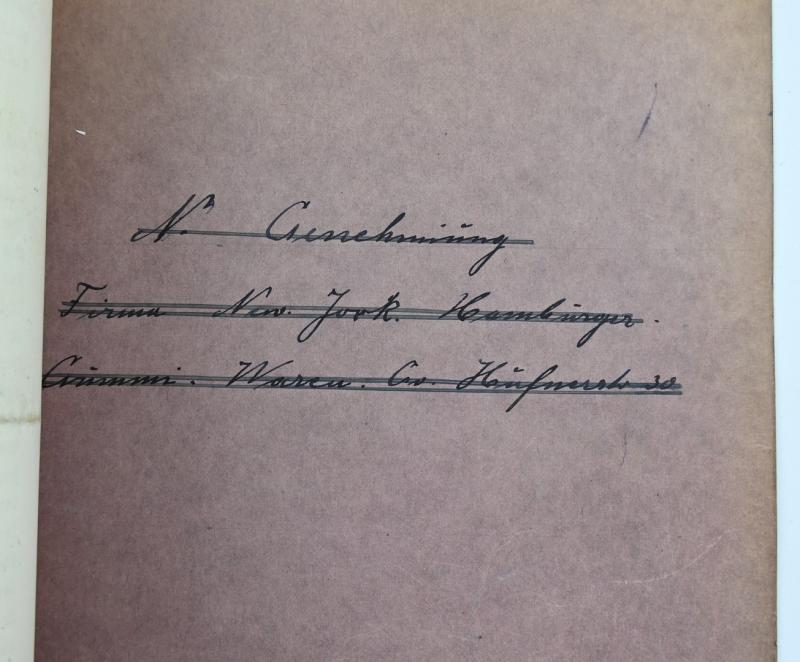 N. Genehmiüng
Firma New. York. Hambürger.
Gümmi. Waren. Co. Hüfnerstr 30